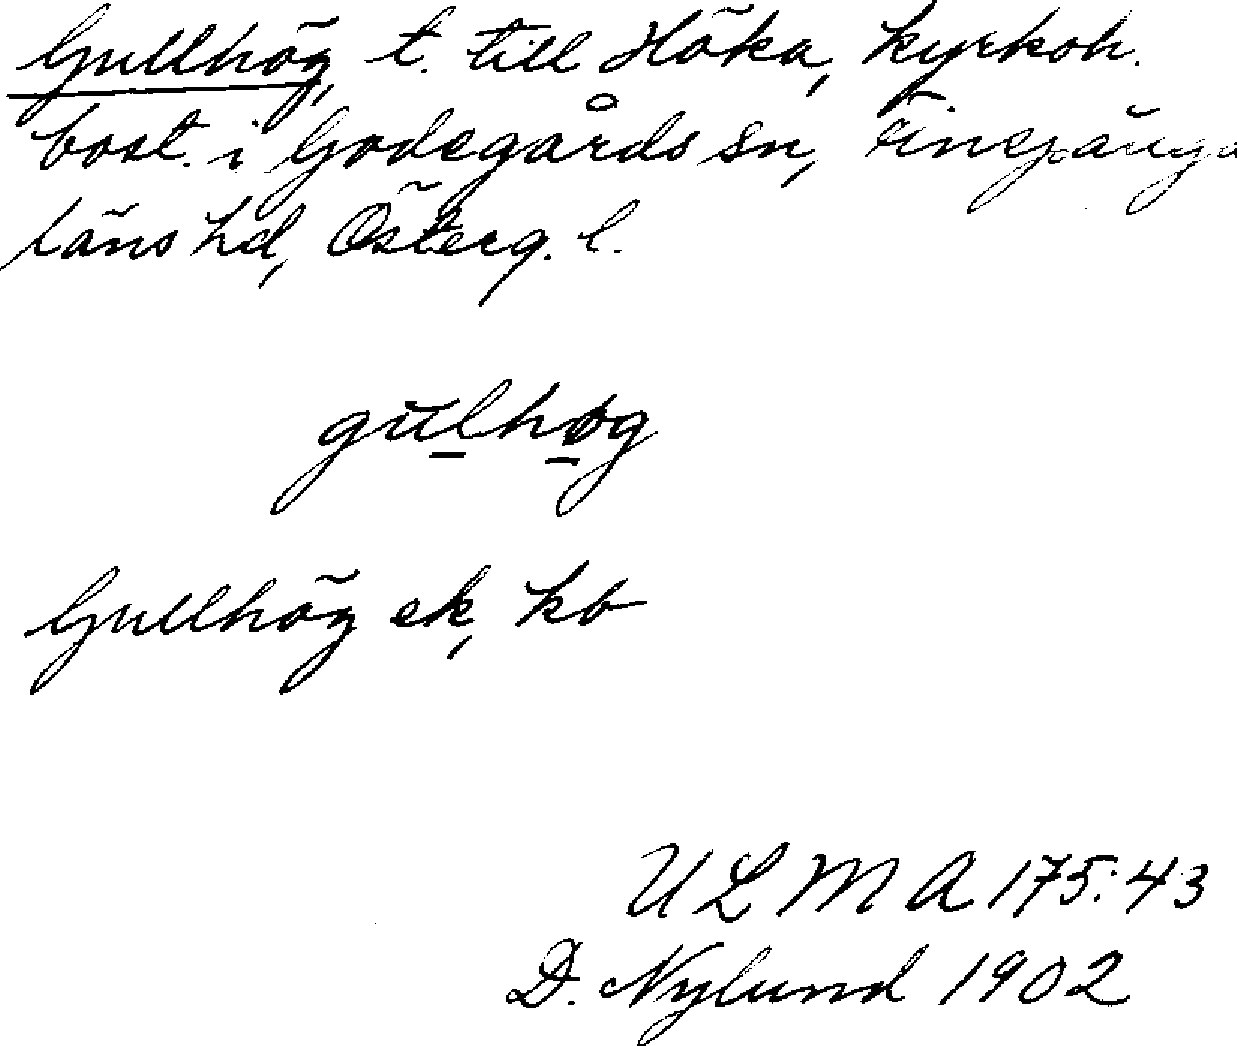 Gullhög, t. till Höka, kyrkoh.
bost. i Godegårds sn, Finspånga
läns hd, Österg. l.
gulhøg
Gullhög ek, kb
ULMA 175:43
D. Nylund 1902